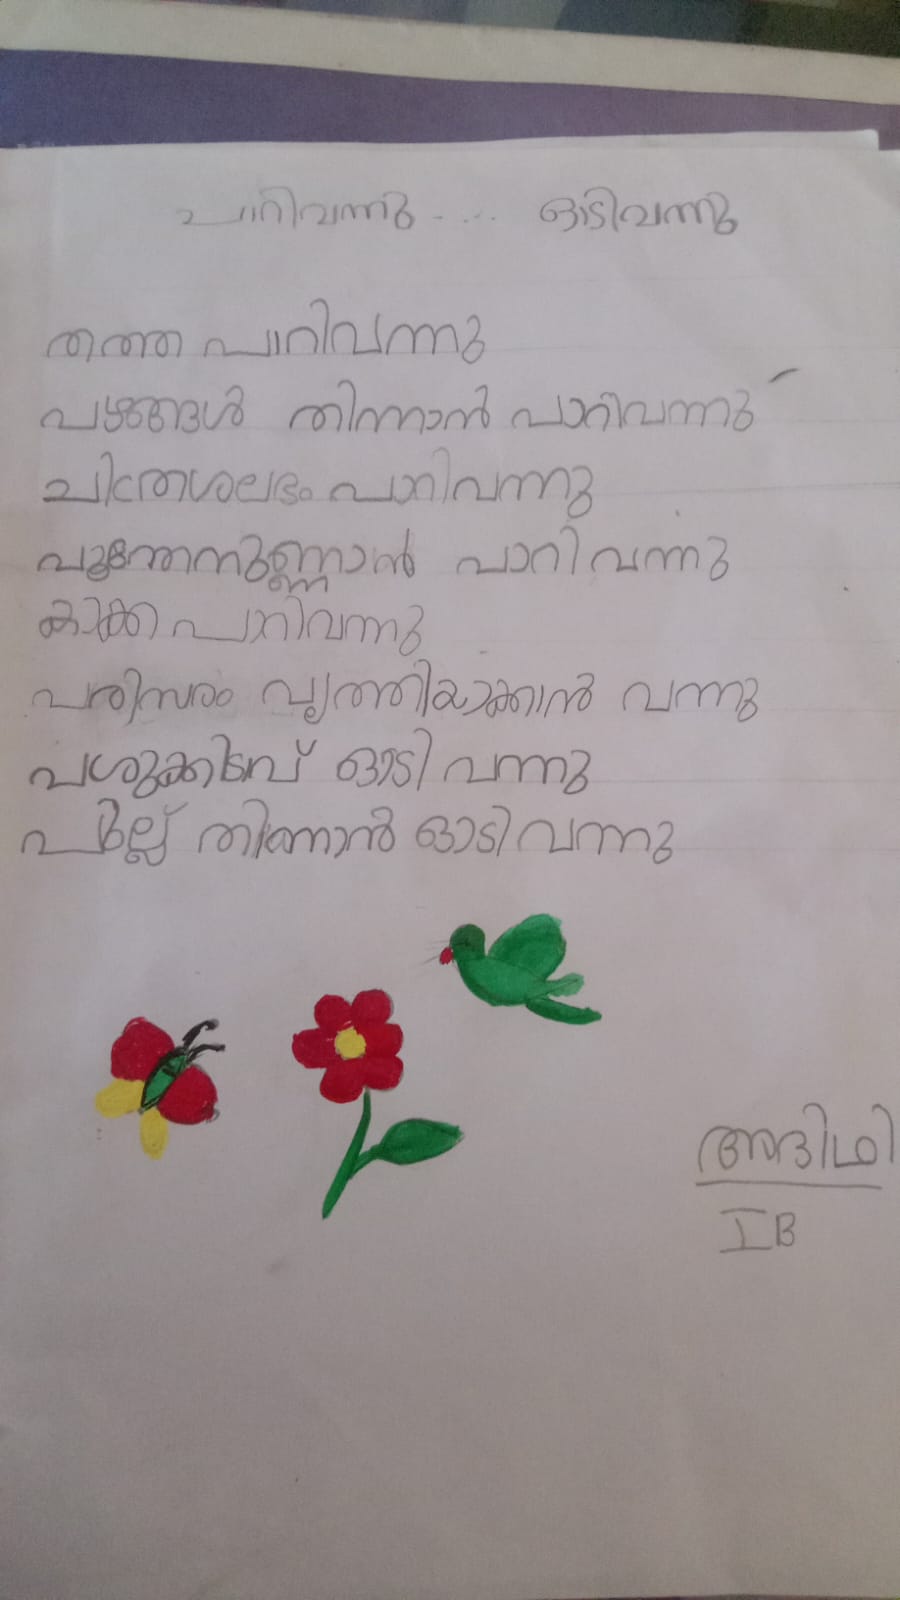 പാറിവന്നു.... ഓടിവന്നു
തത്ത പാറിവന്നു
പഴങ്ങൾ തിന്നാൻ പാറിവന്നു
ചിത്രശലഭം പാറിവന്നു
പൂന്തേനുണ്ണാൻ പാറിവന്നു
കാക്ക പാറിവന്നു
പരിസരം വൃത്തിയാക്കാൻ വന്നു
പശുക്കിടാവ് ഓടി വന്നു
പുല്ല് തിന്നാൻ ഓടിവന്നു
അദിഥി
I B